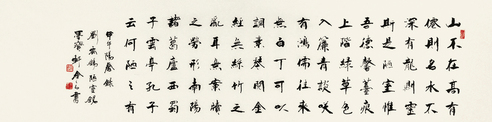 山不在高有
僊則名水不
深有龍則靈
斯是陋室惟
吾德馨苔痕
上階緑草色
入簾青談笑
有鴻儒往來
無白丁可以
調素琴閱金
經無絲竹之
亂耳無案牘
之勞形南陽
諸葛廬西蜀
子雲亭孔子
云何陋之有
甲午陽春錄
劉禹錫陋室銘